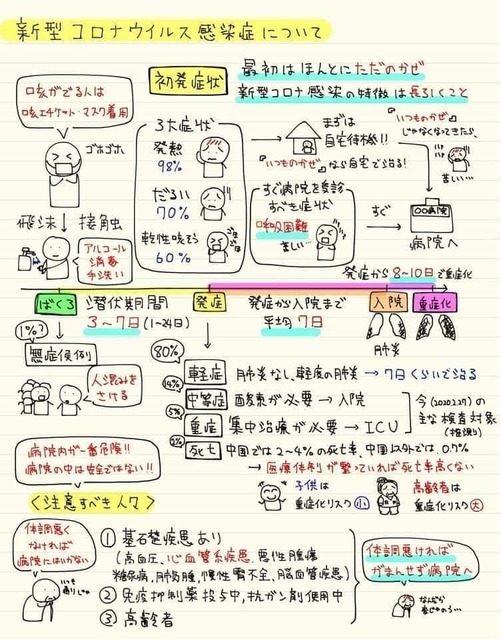 新型コロナウイルス感染症について
咳がでる人は
咳エチケット・マスク着用
初発症状
最初はほんとにただのかぜ
新型コロナ感染の特徴は長引くこと
ゴホゴホ
3大症状
発熱
98%
だるい
70%
乾性咳そう
60%
まずは
自宅待機!!
『いつものかぜ』なら自宅で治る!
『いつものかぜ』
じゃなくなってきたら、
苦しい…
すぐ病院を受診
すべき症状
呼吸困難
苦しい…
すぐ
○○病院
病院へ
飛沫
接触
アルコール
消毒
手洗い
発症から8~10日で重症化
ばくろ
潜伏期間
3~7日(1-24日)
発症
発症から入院まで
平均7日
入院
重症化
肺炎
1%?
無症候例
人混みを
さける
80%
軽症
肺炎なし、軽度の肺炎→7日くらいで治る
14%
中等症
酸素が必要→入院
5%
重症
集中治療が必要→ICU
今(2020.2.27)の
主な検査対象
2%
死亡
中国では2~4%の死亡率、中国以外では、0.7%
→医療体制が整っていれば死亡率高くない
病院内が一番危険!!
病院の中は安全ではない!!
子供は
重症化リスク小
高齢者は
重症化リスク大
<注意すべき人々>
体調悪く
なければ
病院にはいかない
①基礎疾患あり
(高血圧、心血管系疾患、悪性腫瘍
糖尿病、肺気腫、慢性腎不全、脳血管疾患)
②免疫抑制薬投与中、抗ガン剤使用中
③高齢者
体調悪ければ
がまんせず病院へ